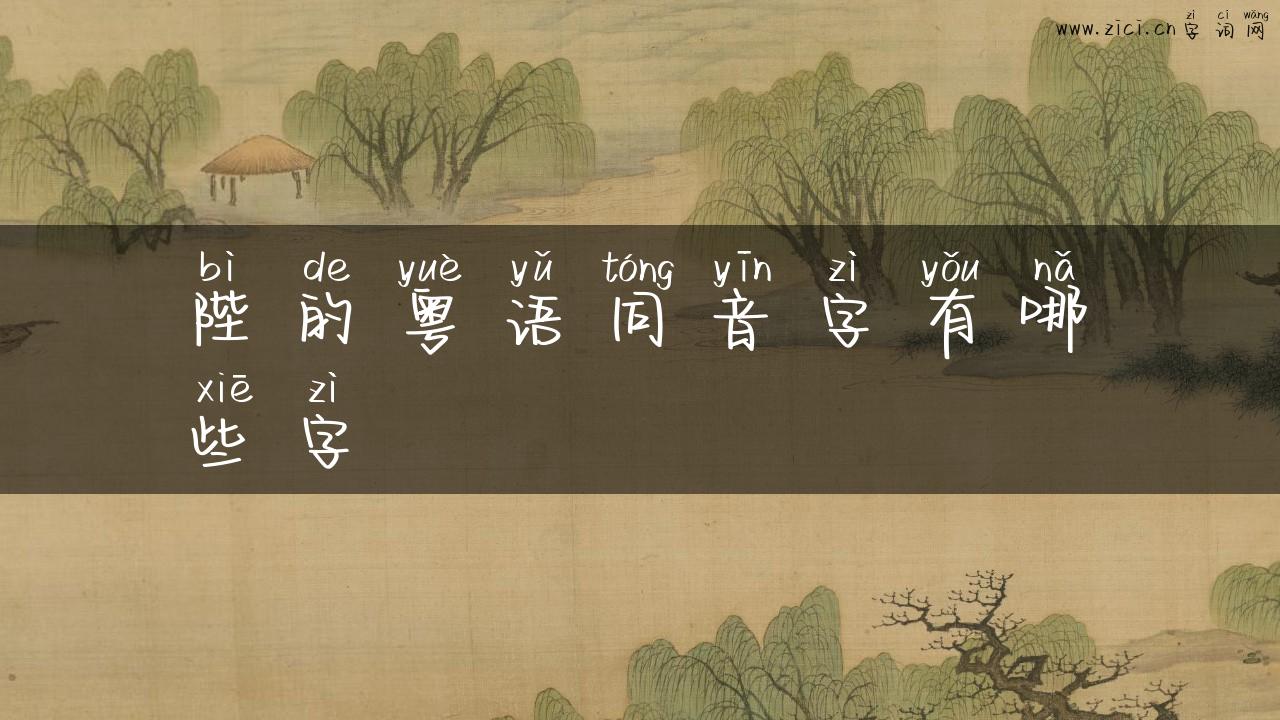 zì cí wǎng
www.zici.cn字词网
bì de yuè yǔ tóng yīn zì yǒu nǎ
陛的粤语同音字有哪
xiē zì
些字